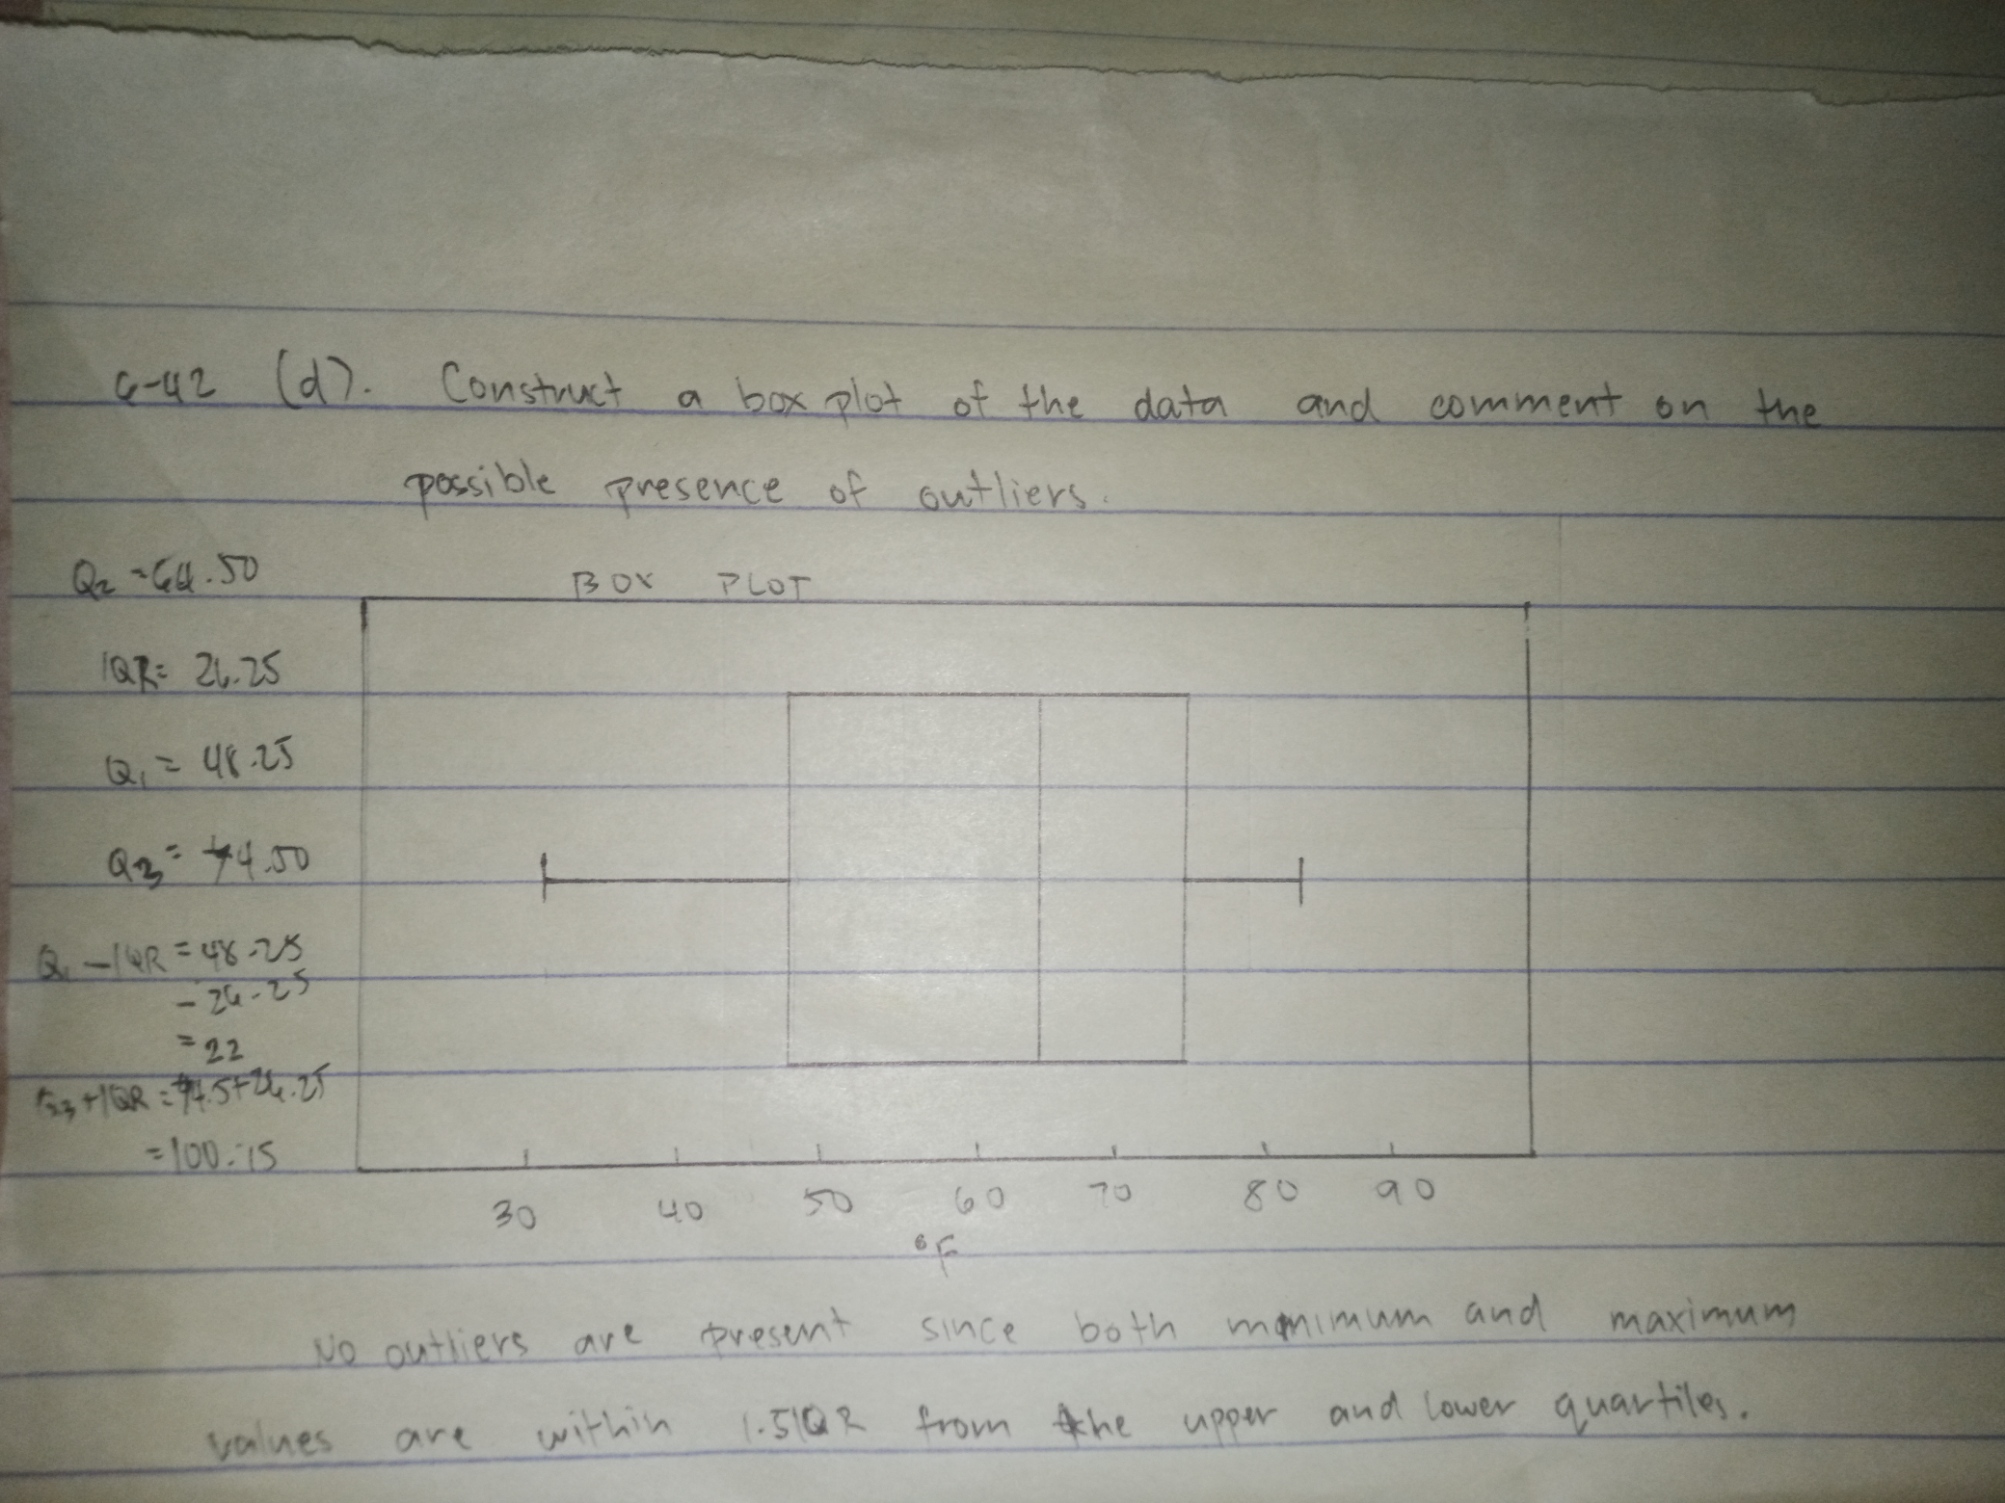 6-42 (d). Construct a box plot of the data and comment on the
possible presence of outliers.
Q2 = 64.50
BOX PLOT
IQR = 26.25
Q1 = 48.25
Q3 = 74.50
Q1 - IQR = 48.25
- 26.25
= 22
Q3 + IQR = 74.5 + 26.25
= 100.75
30 40 50 60 70 80 90
°F
No outliers are present since both minimum and maximum
values are within 1.5IQR from the upper and lower quartiles.